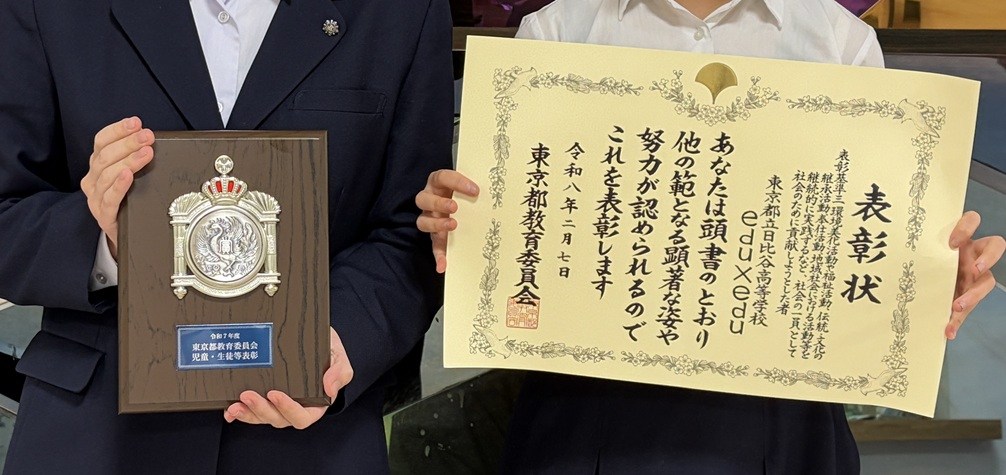 令和7年度
東京都教育委員会
児童・生徒等表彰
表彰状
表彰基準三 環境美化活動や福祉活動、伝統・文化の
継承活動、奉仕活動、地域社会における活動等を
継続的に実践するなど、社会の一員として
社会のために貢献しようとした者
東京都立日比谷高等学校
eduxedu
あなたは頭書のとおり
他の範となる顕著な姿や
努力が認められるので
これを表彰します
令和八年二月七日
東京都教育委員会